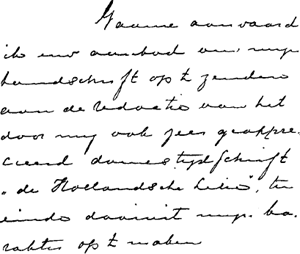 Gaarne aanvaard
ik uw aanbod om mijn
handschrift op te zenden
aan de redactie van het
door mij ook zeer geappre-
cieerd damestijdschrift
"de Hollandsche Lelie", ten
einde daaruit mijn ka-
rakter op te maken